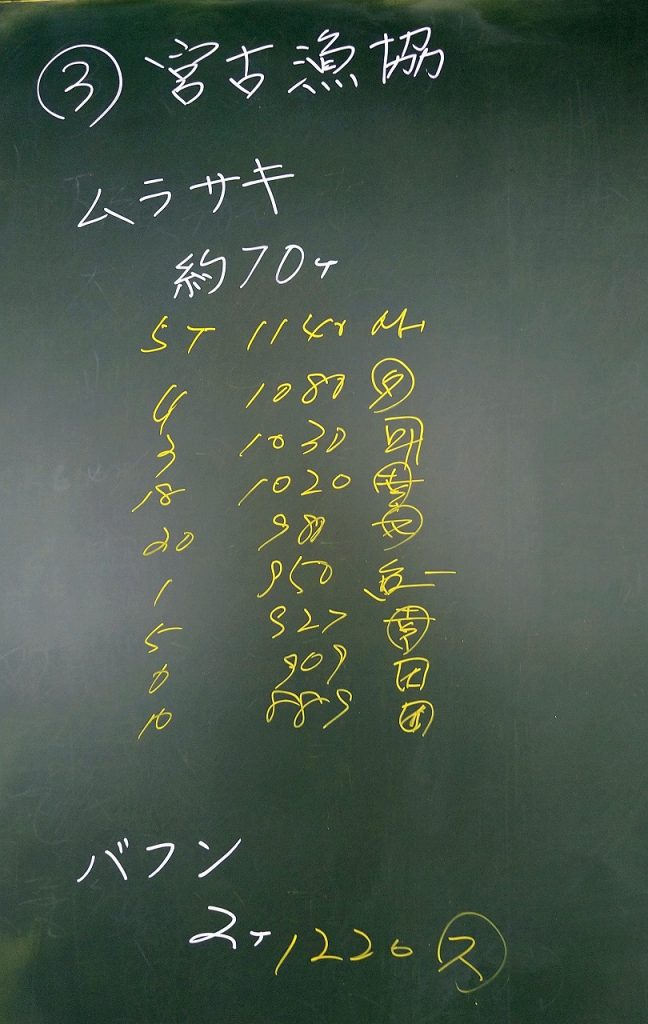 ③ 宮古漁協
ムラサキ
約70T
5T 1140
4 1080
3 1030
18 1020
20 980
1 950
5 927
0 909
10 889
バフン
2T 1220 ㋜